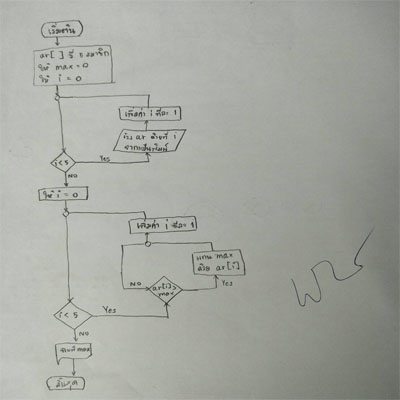 เริ่มต้น
ar[ ] มี 5 สมาชิก
ให้ max = 0
ให้ i = 0
เพิ่มค่า i ทีละ 1
รับ ar ตัวที่ i
จากแป้นพิมพ์
i < 5
Yes
NO
ให้ i = 0
เพิ่มค่า i ทีละ 1
แทน max
ด้วย ar[i]
ar[i]>
max
NO
Yes
i < 5
Yes
NO
max
สิ้นสุด